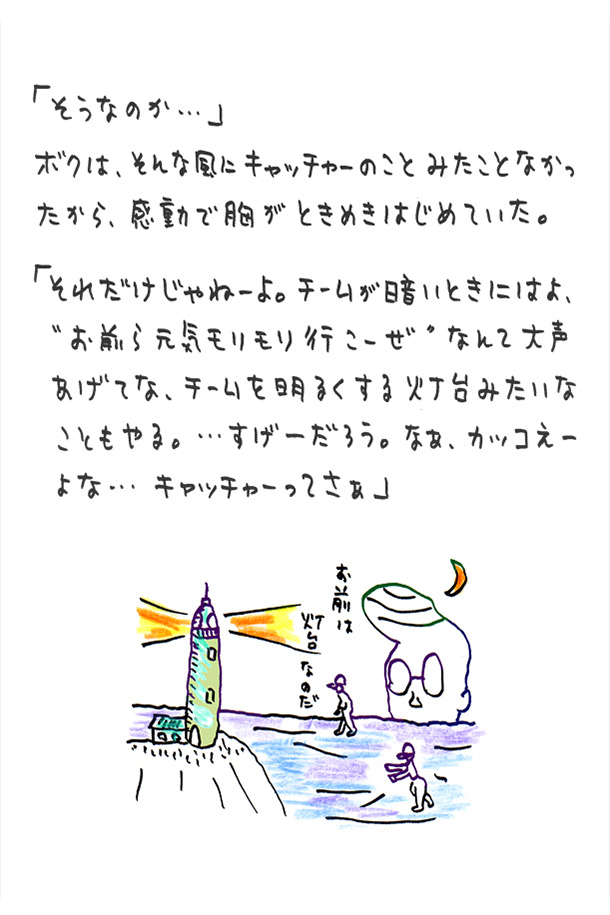 「そうなのか…」
ボクは、そんな風にキャッチャーのことみたことなかっ
たから、感動で胸がときめきはじめていた。
「それだけじゃねーよ。チームが暗いときにはよ、
“お前ら元気モリモリ行こーぜ”なんて大声
あげてな、チームを明るくする灯台みたいな
こともやる。…すげーだろう。なぁ、カッコえー
よな… キャッチャーってさぁ」
お前は
灯台なのだ